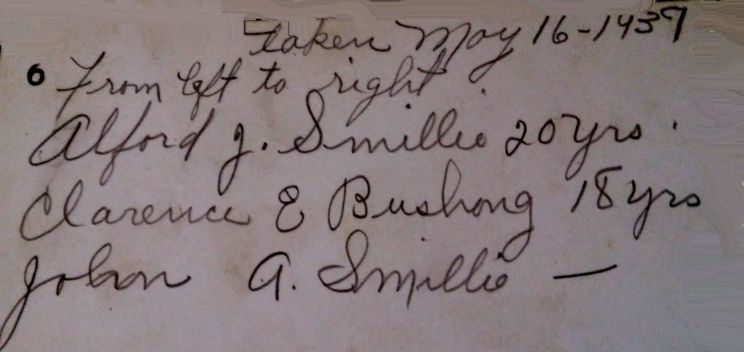 Taken May 16-1937
6 From left to right.
Alford J. Smillie 20 yrs.
Clarence E Bushong 18 yrs
John A. Smillie —